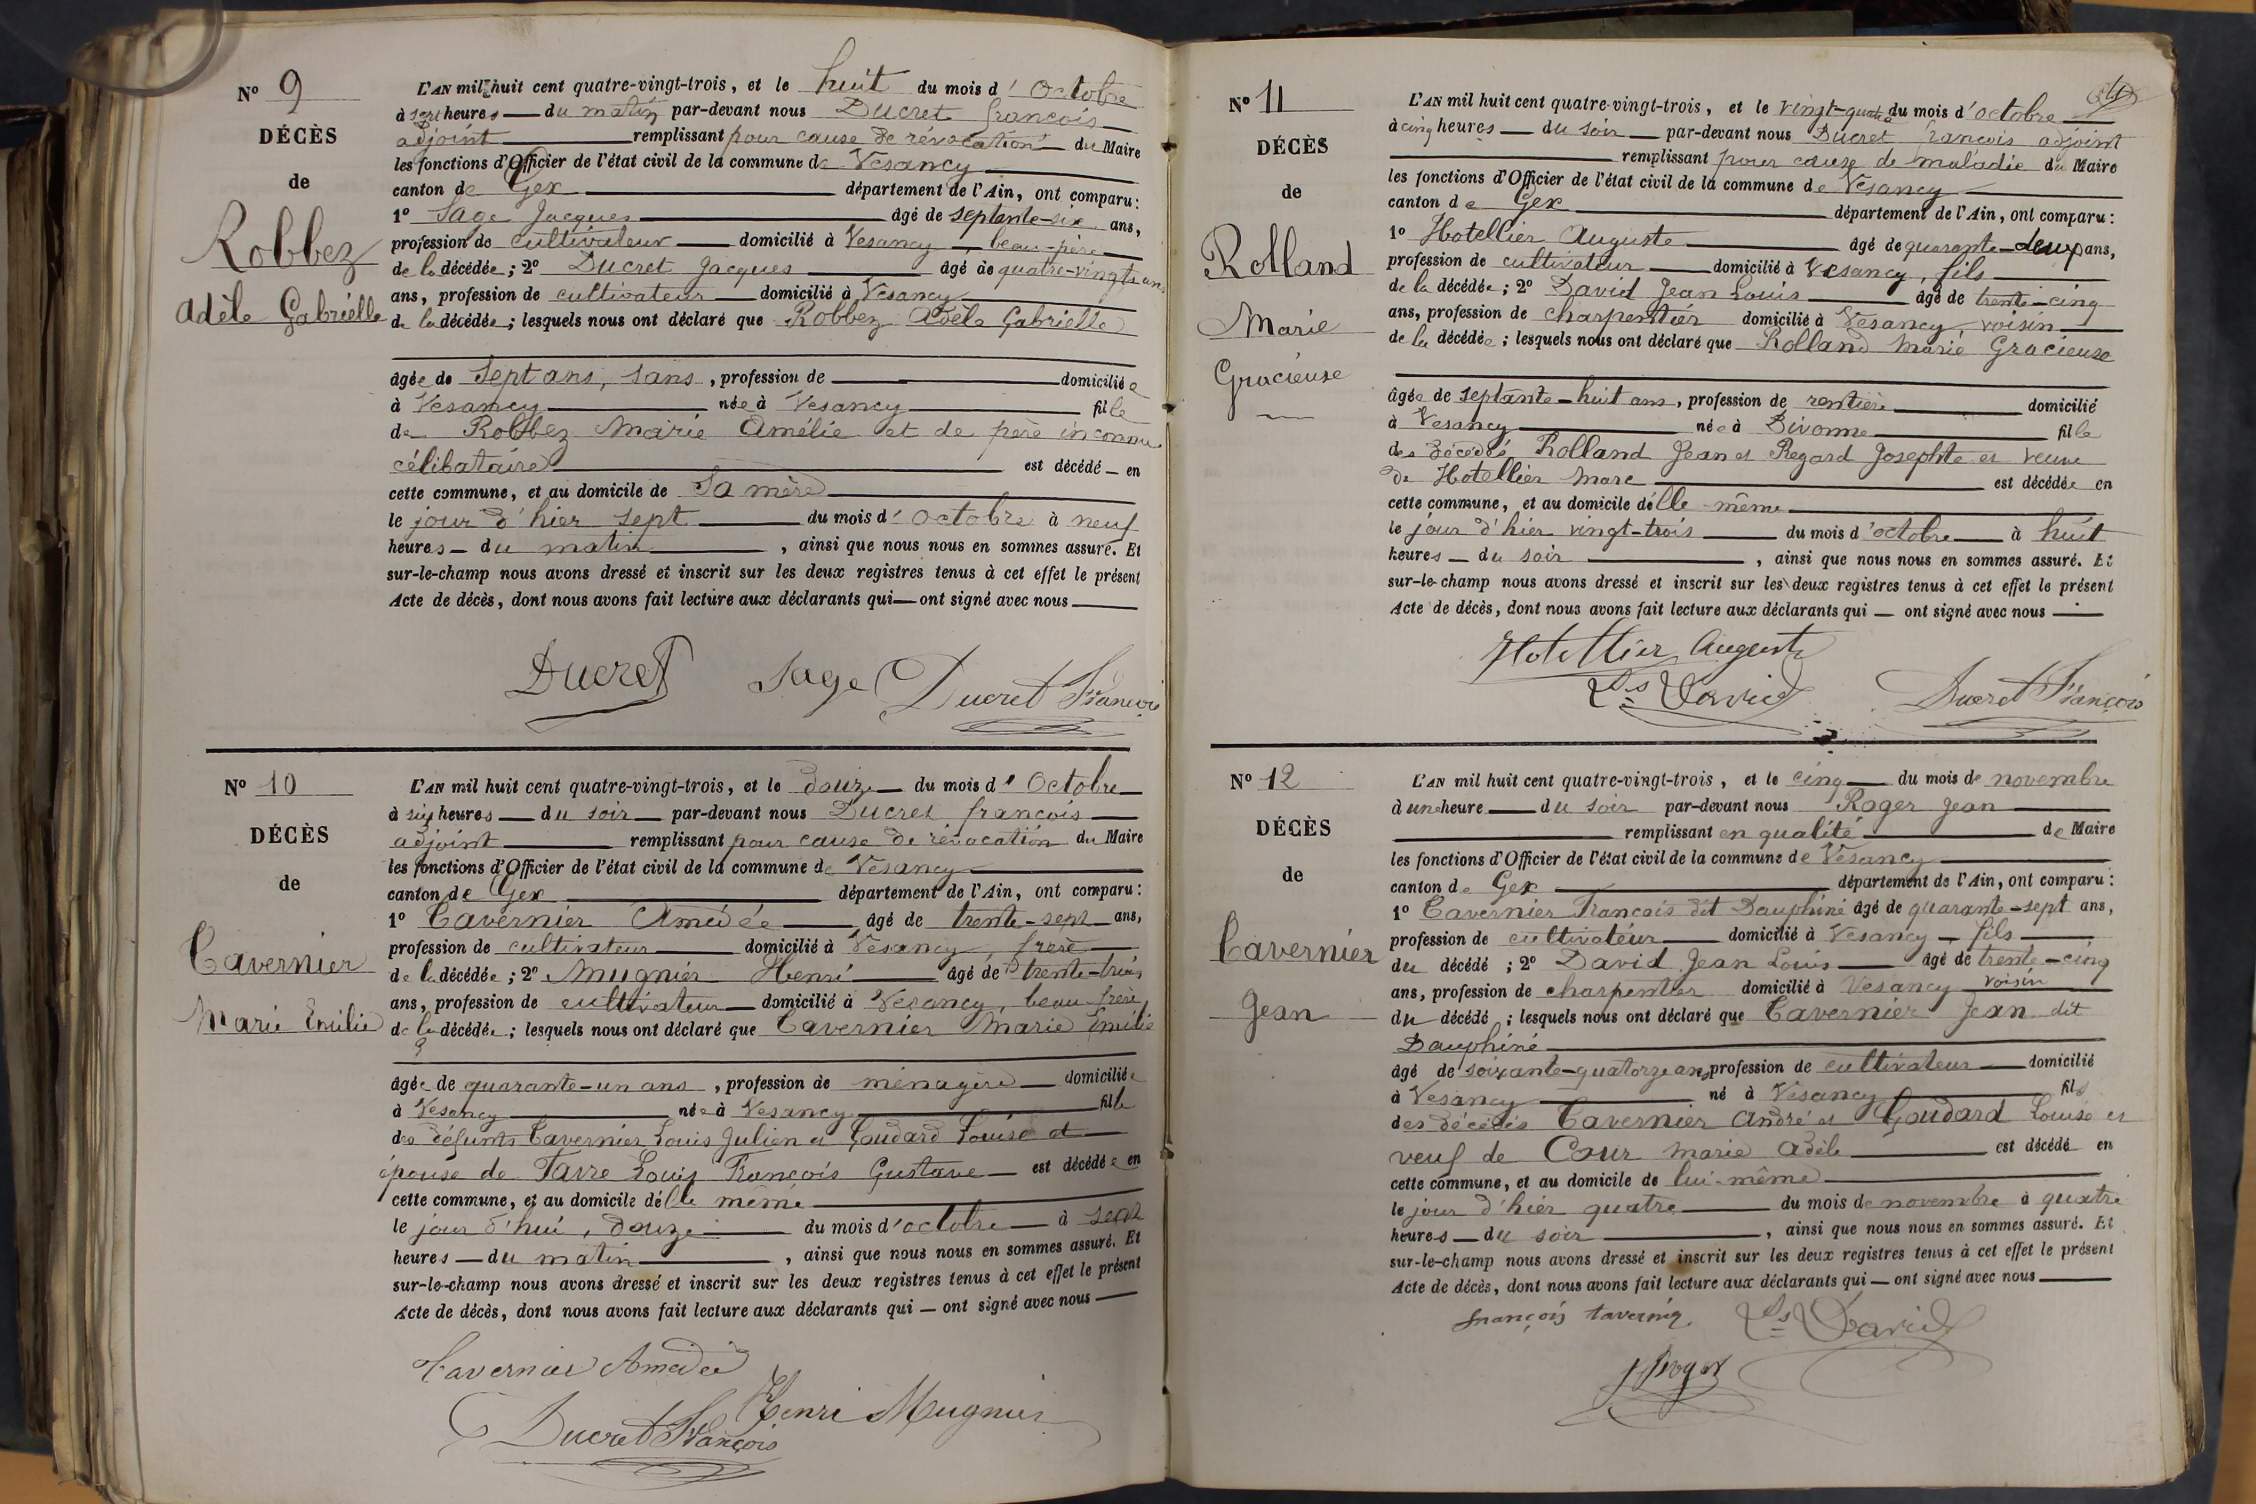 N° 9
DÉCÈS
de
Robbez
Adèle Gabrielle
L'AN mil huit cent quatre-vingt-trois, et le huit du mois d'Octobre
à sept heures du matin par-devant nous Ducret françois
adjoint remplissant pour cause de révocation du Maire
les fonctions d'Officier de l'état civil de la commune de Vesancy
canton de Gex département de l'Ain, ont comparu :
1° Sage Jacques âgé de septante-six ans,
profession de cultivateur domicilié à Vesancy beau-père
de la décédée ; 2° Ducret Jacques âgé de quatre-vingts ans
ans, profession de cultivateur domicilié à Vesancy
de la décédée ; lesquels nous ont déclaré que Robbez Adèle Gabrielle
âgée de Sept ans, sans, profession de domiciliée
à Vesancy née à Vesancy fille
de Robbez Marie Amélie et de père inconnu
célibataire est décédé en
cette commune, et au domicile de Sa mère
le jour d'hier sept du mois d'octobre à neuf
heures du matin, ainsi que nous nous en sommes assuré. Et
sur-le-champ nous avons dressé et inscrit sur les deux registres tenus à cet effet le présent
Acte de décès, dont nous avons fait lecture aux déclarants qui ont signé avec nous
Ducret Sage Ducret François
N° 10
DÉCÈS
de
Tavernier
Marie Emilie
L'AN mil huit cent quatre-vingt-trois, et le douze du mois d'Octobre
à six heures du soir par-devant nous Ducret françois
adjoint remplissant pour cause de révocation du Maire
les fonctions d'Officier de l'état civil de la commune de Vesancy
canton de Gex département de l'Ain, ont comparu :
1° Tavernier Amédée âgé de trente-sept ans,
profession de cultivateur domicilié à Vesancy, frère
de la décédée ; 2° Mugnier Henri âgé de trente-trois
ans, profession de cultivateur domicilié à Vesancy, beau-frère
de la décédée ; lesquels nous ont déclaré que Tavernier Marie Emilie
âgée de quarante-un ans, profession de ménagère domiciliée
à Vesancy née à Vesancy fille
des défunts Tavernier Louis Julien et Goudard Louise et
épouse de Tavre Louis François Gustave est décédée en
cette commune, et au domicile d'elle même
le jour d'hui, douze du mois d'octobre à sept
heures du matin, ainsi que nous nous en sommes assuré. Et
sur-le-champ nous avons dressé et inscrit sur les deux registres tenus à cet effet le présent
Acte de décès, dont nous avons fait lecture aux déclarants qui ont signé avec nous
Tavernier Amedée
Henri Mugnier
Ducret François
N° 11
DÉCÈS
de
Rolland
Marie
Gracieuse
L'AN mil huit cent quatre-vingt-trois, et le vingt-quatre du mois d'octobre
à cinq heures du soir par-devant nous Ducret françois adjoint
remplissant pour cause de maladie du Maire
les fonctions d'Officier de l'état civil de la commune de Vesancy
canton de Gex département de l'Ain, ont comparu :
1° Hotellier Auguste âgé de quarante-deux ans,
profession de cultivateur domicilié à Vesancy, fils
de la décédée ; 2° David Jean Louis âgé de trente-cinq
ans, profession de charpentier domicilié à Vesancy, voisin
de la décédée ; lesquels nous ont déclaré que Rolland Marie Gracieuse
âgée de septante-huit ans, profession de rentière domicilié
à Vesancy née à Divonne fille
des décédés Rolland Jean et Regard Josephte et veuve
de Hotellier Marc est décédée en
cette commune, et au domicile d'elle même
le jour d'hier vingt-trois du mois d'octobre à huit
heures du soir, ainsi que nous nous en sommes assuré. Et
sur-le-champ nous avons dressé et inscrit sur les deux registres tenus à cet effet le présent
Acte de décès, dont nous avons fait lecture aux déclarants qui ont signé avec nous
Hotellier Auguste
Ls David Ducret François
N° 12
DÉCÈS
de
Tavernier
Jean
L'AN mil huit cent quatre-vingt-trois, et le cinq du mois de novembre
à une heure du soir par-devant nous Roger Jean
remplissant en qualité de Maire
les fonctions d'Officier de l'état civil de la commune de Vesancy
canton de Gex département de l'Ain, ont comparu :
1° Tavernier François dit Dauphiné âgé de quarante-sept ans,
profession de cultivateur domicilié à Vesancy, fils
du décédé ; 2° David Jean Louis âgé de trente-cinq
ans, profession de charpentier domicilié à Vesancy voisin
du décédé ; lesquels nous ont déclaré que Tavernier Jean dit
Dauphiné
âgé de soixante-quatorze ans, profession de cultivateur domicilié
à Vesancy né à Vesancy fils
des décédés Tavernier André et Goudard Louise et
veuf de Cour Marie Adèle est décédé en
cette commune, et au domicile de lui-même
le jour d'hier quatre du mois de novembre à quatre
heures du soir, ainsi que nous nous en sommes assuré. Et
sur-le-champ nous avons dressé et inscrit sur les deux registres tenus à cet effet le présent
Acte de décès, dont nous avons fait lecture aux déclarants qui ont signé avec nous
françois tavernier Ls David
J Roger